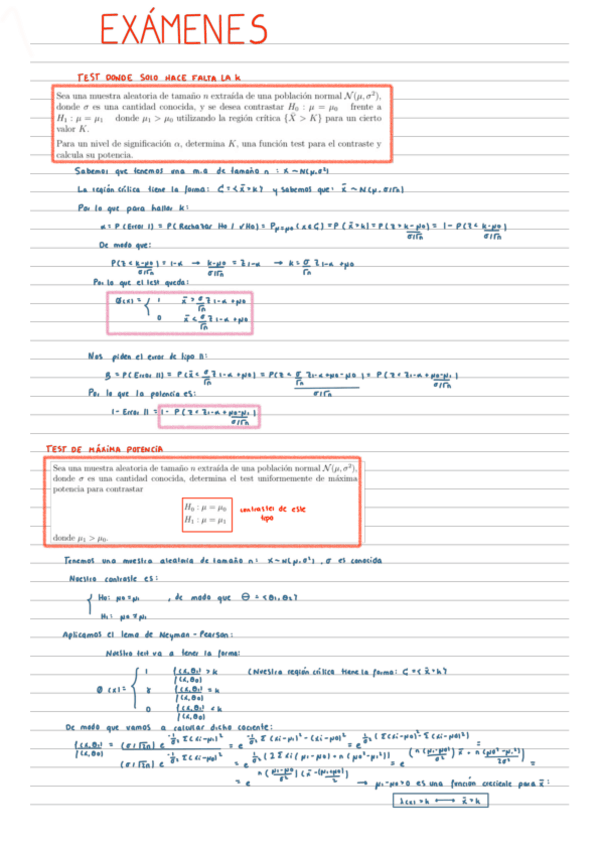 EXÁMENES
TEST DONDE SOLO HACE FALTA LA K
Sea una muestra aleatoria de tamaño n extraída de una población normal N(μ, σ²),
donde σ es una cantidad conocida, y se desea contrastar H₀ : μ = μ₀ frente a
H₁ : μ = μ₁ donde μ₁ > μ₀ utilizando la región crítica {X̄ > K} para un cierto
valor K.
Para un nivel de significación α, determina K, una función test para el contraste y
calcula su potencia.
Sabemos que tenemos una m.a de tamaño n : X ~ N(μ, σ²)
La región crítica tiene la forma: C = {x̄ > k} y sabemos que: x̄ ~ N(μ, σ/√n)
Por lo que para hallar k:
α = P(Error I) = P(Rechazar H₀ / H₀) = P μ=μ₀ (x ∈ C) = P(x̄ > k) = P(z > k-μ₀ / σ/√n) = 1 - P(z < k-μ₀ / σ/√n)
De modo que:
P(z < k-μ₀ / σ/√n) = 1-α → k-μ₀ / σ/√n = z 1-α → k = σ/√n z 1-α + μ₀
Por lo que el test queda:
Ø(x) = { 1 x̄ > σ/√n z 1-α + μ₀
0 x̄ < σ/√n z 1-α + μ₀
Nos piden el error de tipo II:
β = P(Error II) = P(x̄ < σ/√n z 1-α + μ₀) = P(z < σ/√n z 1-α + μ₀ - μ₁ / σ/√n) = P(z < z 1-α + μ₀-μ₁ / σ/√n)
Por lo que la potencia es:
1 - Error II = 1 - P(z < z 1-α + μ₀-μ₁ / σ/√n)
TEST DE MÁXIMA POTENCIA
Sea una muestra aleatoria de tamaño n extraída de una población normal N(μ, σ²),
donde σ es una cantidad conocida, determina el test uniformemente de máxima
potencia para contrastar
H₀ : μ = μ₀
H₁ : μ = μ₁
contrastes de este
tipo
donde μ₁ > μ₀.
Tenemos una muestra aleatoria de tamaño n: X ~ N(μ, σ²), σ es conocida
Nuestro contraste es:
H₀: μ = μ₀ , de modo que Θ = {θ₁, θ₂}
H₁:
Aplicamos el lema de Neyman - Pearson:
Nuestro test va a tener la forma:
Ø(x) = { 1 f(x, θ₁) / f(x, θ₀) > k (Nuestra región crítica tiene la forma: C = {x̄ > k})
γ f(x, θ₁) / f(x, θ₀) = k
0 f(x, θ₁) / f(x, θ₀) < k
De modo que vamos a calcular dicho cociente:
→ μ₁ - μ₀ > 0 es una función creciente para x̄ :
λ(x) > k ⟷ x̄ > k